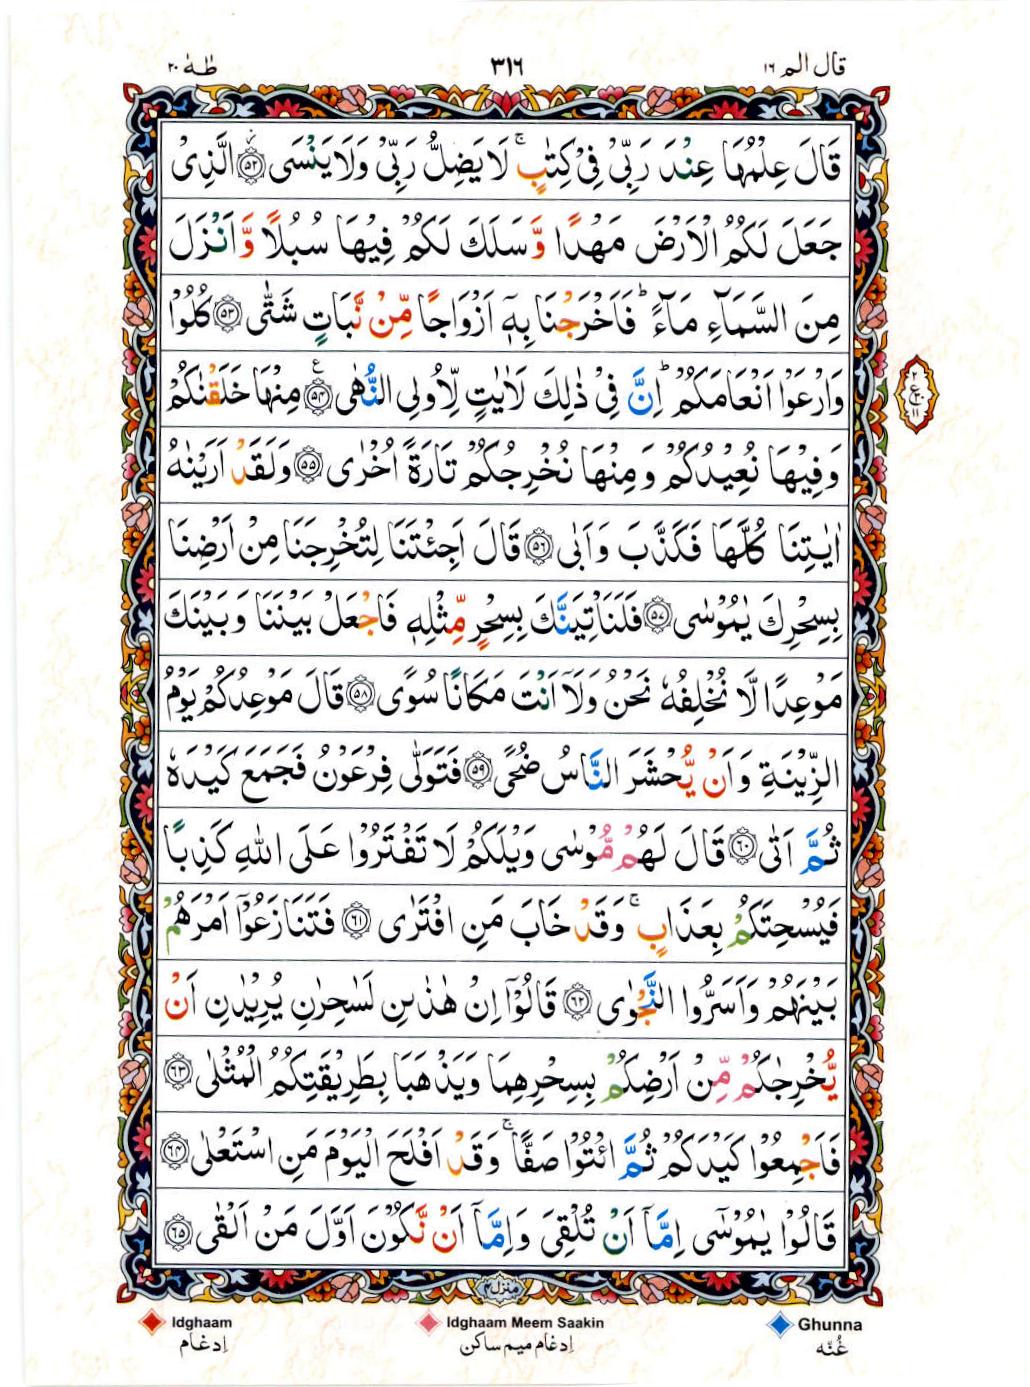 قال الم ١٦
٣١٦
طٰهٰ ٢٠
قَالَ عِلْمُهَا عِنْدَ رَبِّيْ فِيْ كِتٰبٍ ۚ لَا يَضِلُّ رَبِّيْ وَلَا يَنْسَى ﴿٥٢﴾ الَّذِيْ
جَعَلَ لَكُمُ الْاَرْضَ مَهْدًا وَّسَلَكَ لَكُمْ فِيْهَا سُبُلًا وَّاَنْزَلَ
مِنَ السَّمَآءِ مَآءً ؕ فَاَخْرَجْنَا بِهٖٓ اَزْوَاجًا مِّنْ نَّبَاتٍ شَتّٰى ﴿٥٣﴾ كُلُوْا
وَارْعَوْا اَنْعَامَكُمْ ؕ اِنَّ فِيْ ذٰلِكَ لَاٰيٰتٍ لِّاُولِى النُّهٰى ﴿٥٤﴾ مِنْهَا خَلَقْنٰكُمْ
وَفِيْهَا نُعِيْدُكُمْ وَمِنْهَا نُخْرِجُكُمْ تَارَةً اُخْرٰى ﴿٥٥﴾ وَلَقَدْ اَرَيْنٰهُ
اٰيٰتِنَا كُلَّهَا فَكَذَّبَ وَاَبٰى ﴿٥٦﴾ قَالَ اَجِئْتَنَا لِتُخْرِجَنَا مِنْ اَرْضِنَا
بِسِحْرِكَ يٰمُوْسٰى ﴿٥٧﴾ فَلَنَاْتِيَنَّكَ بِسِحْرٍ مِّثْلِهٖ فَاجْعَلْ بَيْنَنَا وَبَيْنَكَ
مَوْعِدًا لَّا نُخْلِفُهٗ نَحْنُ وَلَآ اَنْتَ مَكَانًا سُوًى ﴿٥٨﴾ قَالَ مَوْعِدُكُمْ يَوْمُ
الزِّيْنَةِ وَاَنْ يُّحْشَرَ النَّاسُ ضُحًى ﴿٥٩﴾ فَتَوَلّٰى فِرْعَوْنُ فَجَمَعَ كَيْدَهٗ
ثُمَّ اَتٰى ﴿٦٠﴾ قَالَ لَهُمْ مُّوْسٰى وَيْلَكُمْ لَا تَفْتَرُوْا عَلَى اللّٰهِ كَذِبًا
فَيُسْحِتَكُمْ بِعَذَابٍ ۚ وَقَدْ خَابَ مَنِ افْتَرٰى ﴿٦١﴾ فَتَنَازَعُوْٓا اَمْرَهُمْ
بَيْنَهُمْ وَاَسَرُّوا النَّجْوٰى ﴿٦٢﴾ قَالُوْٓا اِنْ هٰذٰىنِ لَسٰحِرٰنِ يُرِيْدٰنِ اَنْ
يُّخْرِجٰكُمْ مِّنْ اَرْضِكُمْ بِسِحْرِهِمَا وَيَذْهَبَا بِطَرِيْقَتِكُمُ الْمُثْلٰى ﴿٦٣﴾
فَاَجْمِعُوْا كَيْدَكُمْ ثُمَّ ائْتُوْا صَفًّا ۚ وَقَدْ اَفْلَحَ الْيَوْمَ مَنِ اسْتَعْلٰى ﴿٦٤﴾
قَالُوْا يٰمُوْسٰٓى اِمَّآ اَنْ تُلْقِيَ وَاِمَّآ اَنْ نَّكُوْنَ اَوَّلَ مَنْ اَلْقٰى ﴿٦٥﴾
منزل ٤
Idghaam
ادغام
Idghaam Meem Saakin
ادغام میم ساکن
Ghunna
غُنّه